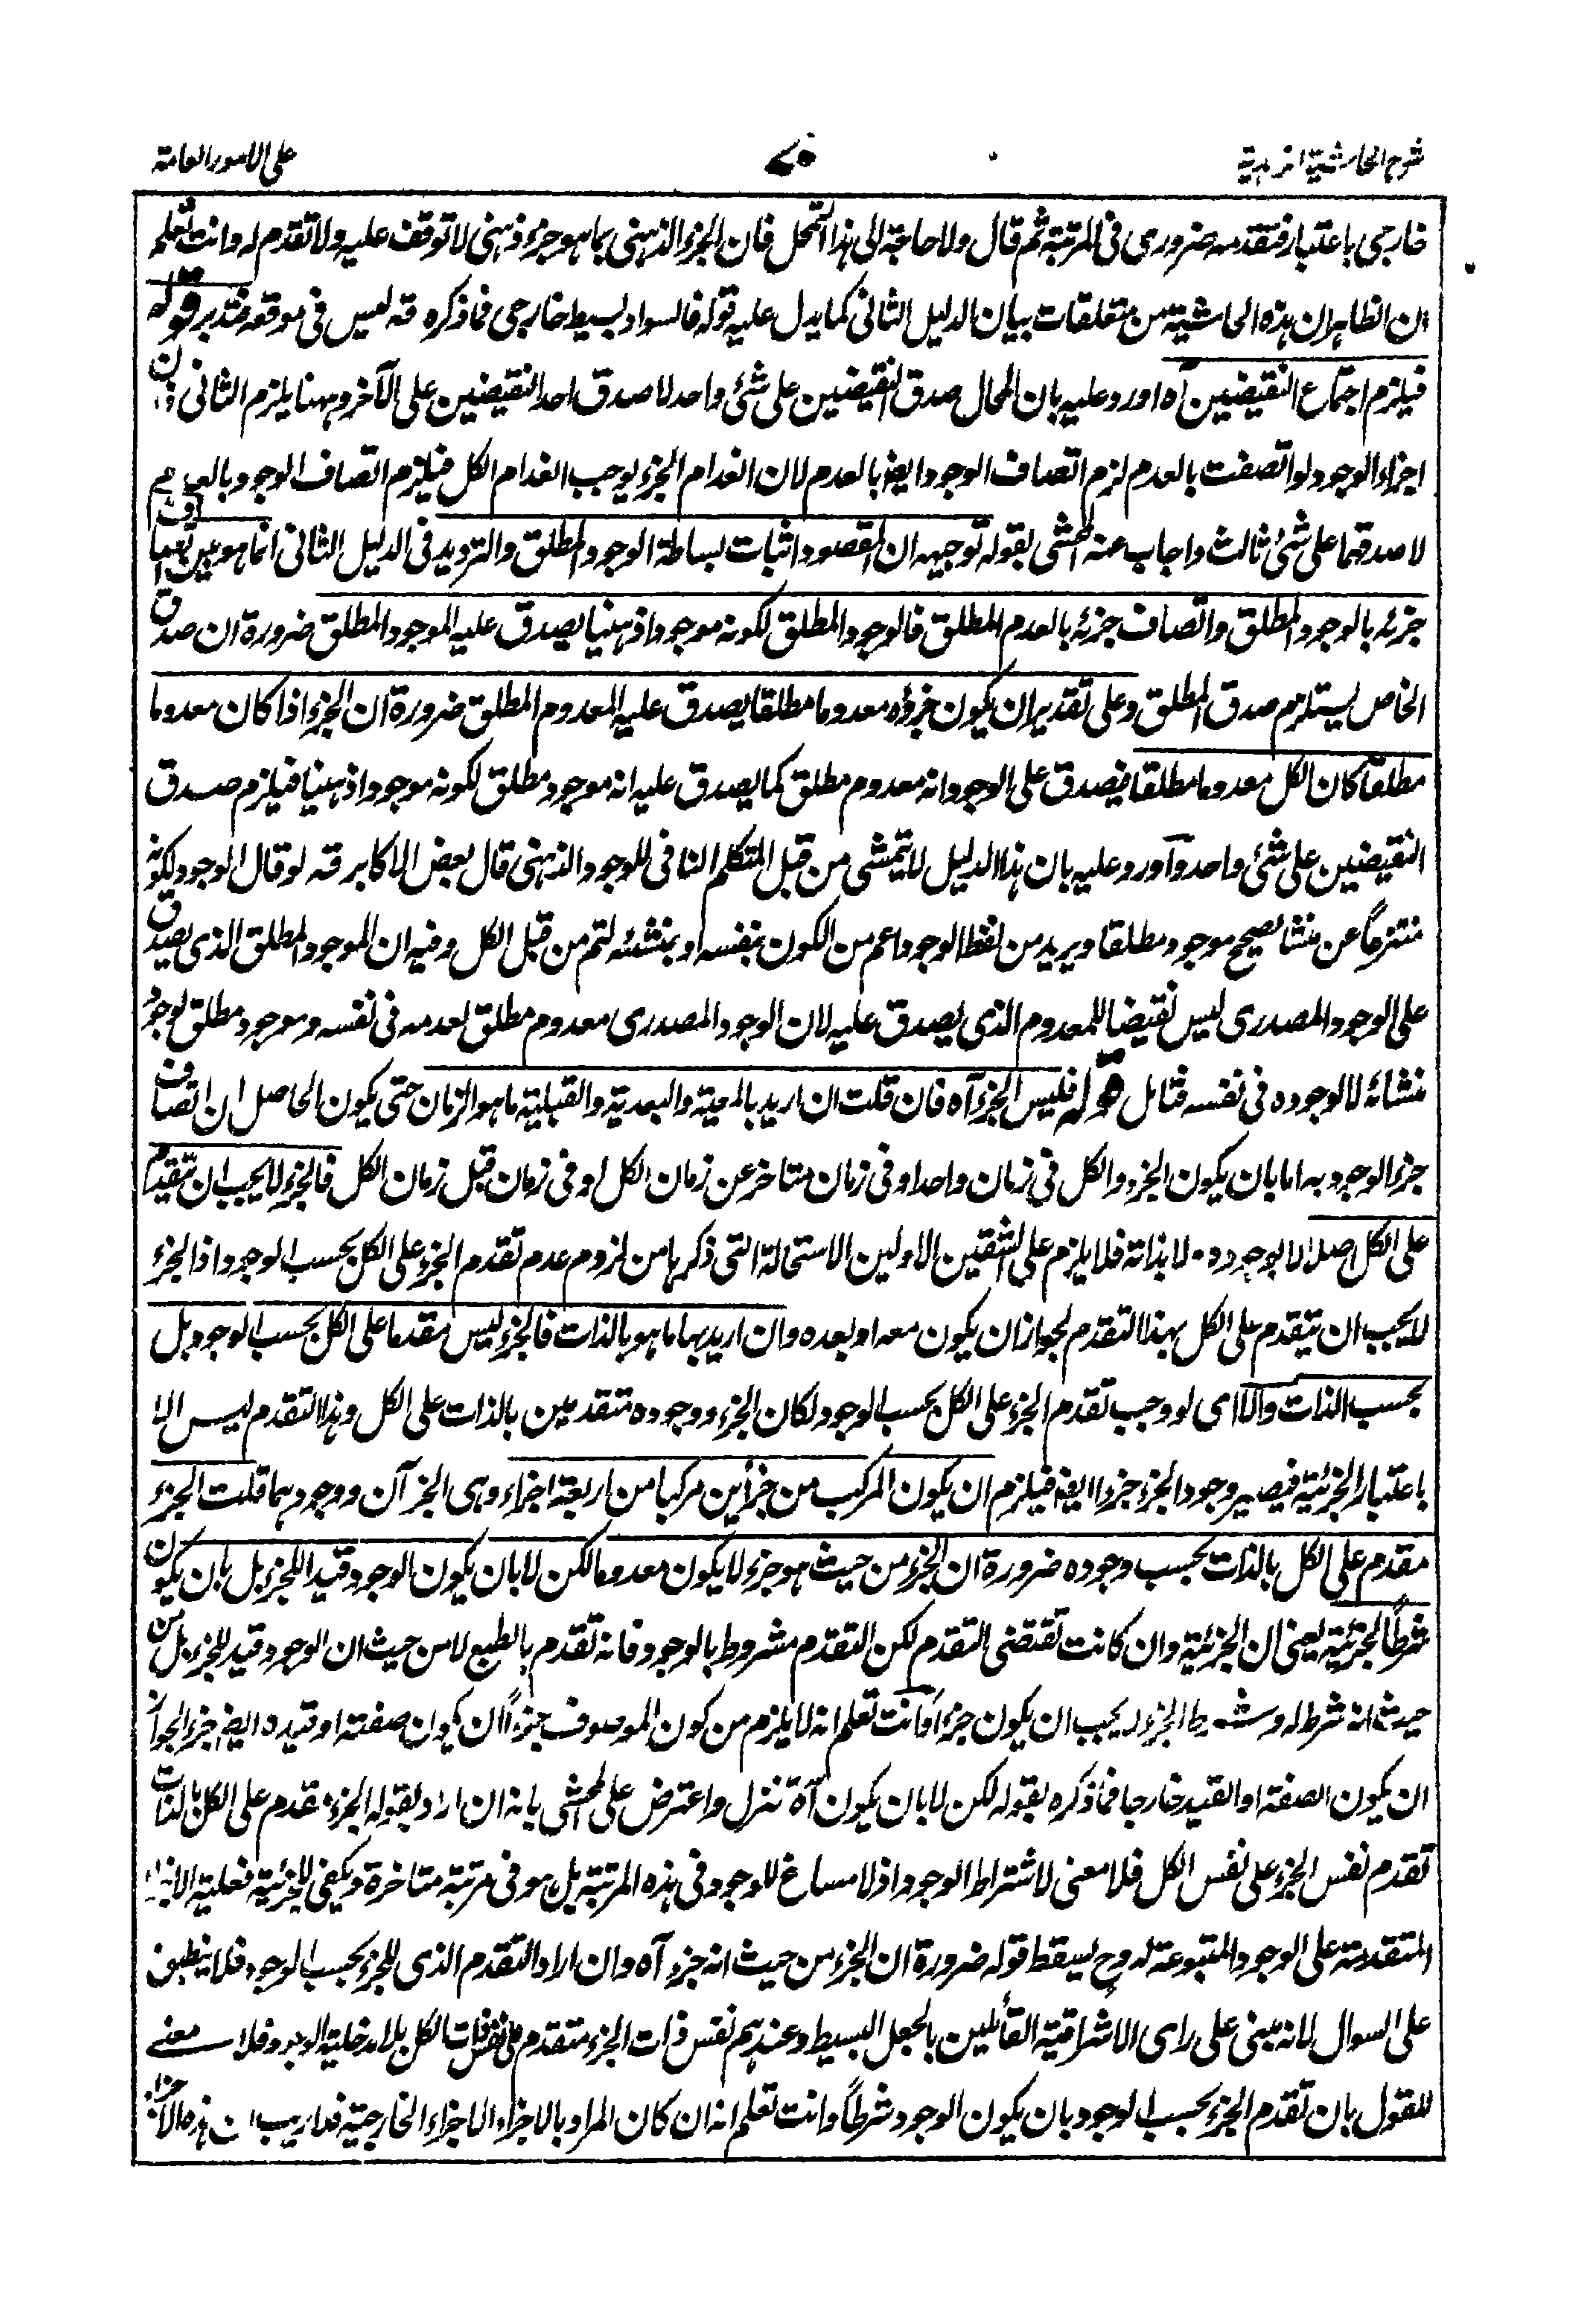 شرح الحاشية الزاهدية
٧٥
على الامور العامة
خارجى باعتبار فتقدمه ضرورى فى المرتبة ثم قال ولا حاجة الى هذا التمحل فان الجزء الذهنى بما هو جزء ذهنى لا توقف عليه ولا تقدم له وانت تعلم
ان الظاهر ان هذه الحاشية من متعلقات بيان الدليل الثانى كما يدل عليه قوله فالسواد بسيط خارجى فما ذكره قه ليس فى موقعه فتدبر قوله
فيلزم اجتماع النقيضين آه اورد عليه بان المحال صدق النقيضين على شئ واحد لا صدق احد النقيضين على الآخر وههنا يلزم الثانى لان
اجزاء الوجود لو اتصفت بالعدم لزم اتصاف الوجود ايضا بالعدم لان انعدام الجزء يوجب انعدام الكل فيلزم اتصاف الوجود بالعدم
لا صدقهما على شئ ثالث واجاب عنه المحشى بقوله توجيهه ان المقصود اثبات بساطة الوجود المطلق والترديد فى الدليل الثانى انما هو بين اتصاف
جزئه بالوجود المطلق واتصاف جزئه بالعدم المطلق فالوجود المطلق لكونه موجودا ذهنيا يصدق عليه الموجود المطلق ضرورة ان صدق
الخاص يستلزم صدق المطلق وعلى تقدير ان يكون جزؤه معدوما مطلقا يصدق عليه المعدوم المطلق ضرورة ان الجزء اذا كان معدوما
مطلقا كان الكل معدوما مطلقا فيصدق على الوجود انه معدوم مطلق كما يصدق عليه انه موجود مطلق لكونه موجودا ذهنيا فيلزم صدق
النقيضين على شئ واحد وآورد عليه بان هذا الدليل لا يتمشى من قبل المتكلم النافى للوجود الذهنى قال بعض الاكابر قه لو قال الوجود لكونه
منتزعاً عن منشا يصحح موجود مطلقا ويريد من لفظ الوجود اعم من الكون بنفسه او بمنشئه لتم من قبل الكل وفيه ان الموجود المطلق الذى يصدق
على الوجود المصدرى ليس نقيضا للمعدوم الذى يصدق عليه لان الوجود المصدرى معدوم مطلق لعدمه فى نفسه وموجود مطلق لوجود
منشائه لا لوجوده فى نفسه فتامل قوله فليس الجزء آه فان قلت ان اريد بالمعية والبعدية والقبلية ما هو الزمان حتى يكون الحاصل ان اتصاف
جزء الوجود به اما بان يكون الجزء والكل فى زمان واحد او فى زمان متاخر عن زمان الكل او فى زمان قبل زمان الكل فالجزء لا يجب ان يتقدم
على الكل اصلا لا بوجوده ولا بذاته فلا يلزم على الشقين الاولين الاستحالة التى ذكرها من لزوم عدم تقدم الجزء على الكل بحسب الوجود اذ الجزء
لا يجب ان يتقدم على الكل بهذا التقدم لجواز ان يكون معه او بعده وان اريد بها ما هو بالذات فالجزء ليس مقدما على الكل بحسب الوجود بل
بحسب الذات والا اى لو وجب تقدم الجزء على الكل بحسب الوجود لكان الجزء ووجوده متقدمين بالذات على الكل وهذا التقدم ليس الا
باعتبار الجزئية فيصير وجود الجزء جزءا ايضا فيلزم ان يكون المركب من جزأين مركبا من اربعة اجزاء وهى الجزآن ووجودهما قلت الجزء
مقدم على الكل بالذات بحسب وجوده ضرورة ان الجزء من حيث هو جزء لا يكون معدوما لكن لا بان يكون الوجود قيدا للجزء بل بان يكون
شرطاً للجزئية يعنى ان الجزئية وان كانت تقتضى التقدم لكن التقدم مشروط بالوجود فانه تقدم بالطبع لا من حيث ان الوجود قيد للجزء بل من
حيث انه شرط له وشرط الجزء لا يجب ان يكون جزءا وآنت تعلم انه لا يلزم من كون الموصوف جزءاً ان يكون صفته او قيده ايضا جزءا لجواز
ان يكون الصفة او القيد خارجا فما ذكره بقوله لكن لا بان يكون آه تنزل واعترض على المحشى بانه ان اراد بقوله الجزء مقدم على الكل بالذات
تقدم نفس الجزء على نفس الكل فلا معنى لاشتراط الوجود اذ لا مساغ للوجود فى هذه المرتبة بل هو فى مرتبة متاخرة ويكفى للجزئية فعلية الاجزاء
المتقدمة على الوجود المتبوعة له وح يسقط قوله ضرورة ان الجزء من حيث انه جزء آه وان اراد التقدم الذى للجزء بحسب الوجود فلا ينطبق
على السوال لانه مبنى على راى الاشراقية القائلين بالجعل البسيط وعندهم نفس ذات الجزء متقدم على نفس ذات الكل بلا مدخلية الوجود فلا معنے
للقول بان تقدم الجزء بحسب الوجود بان يكون الوجود شرطاً وانت تعلم انه ان كان المراد بالاجزاء الاجزاء الخارجية فلا ريب ان هذه الاجزاء